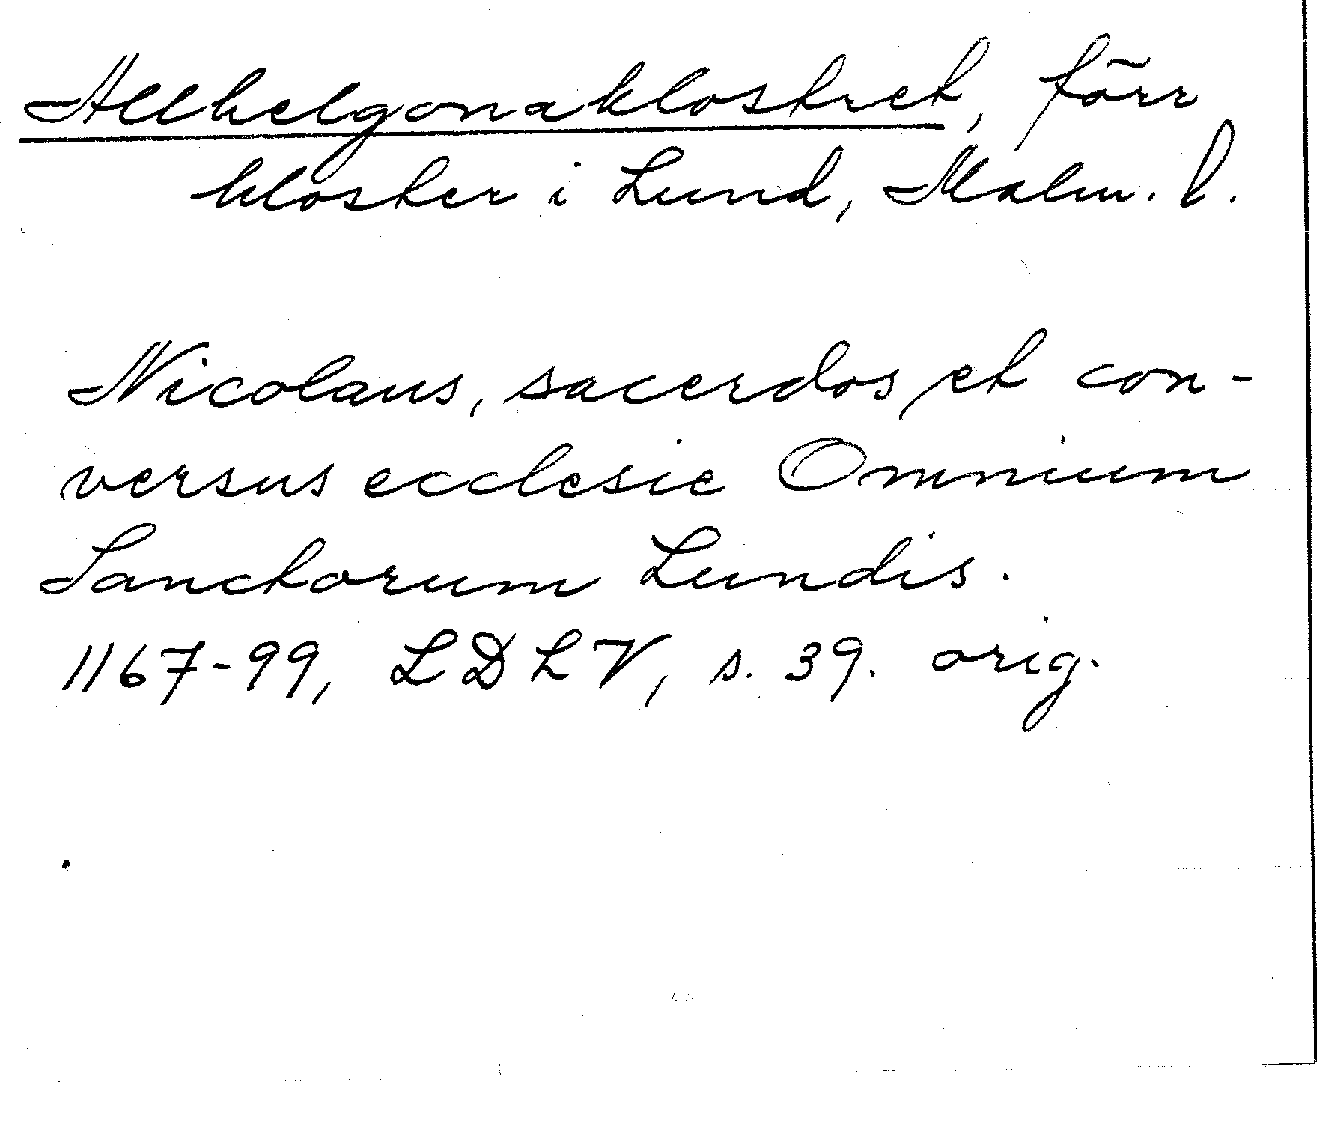 Allhelgonaklostret, förr
kloster i Lund, Malm. l.
Nicolaus, sacerdos et con-
versus ecclesie Omnium
Sanctorum Lundis.
1167-99, LDLV, s. 39. orig.